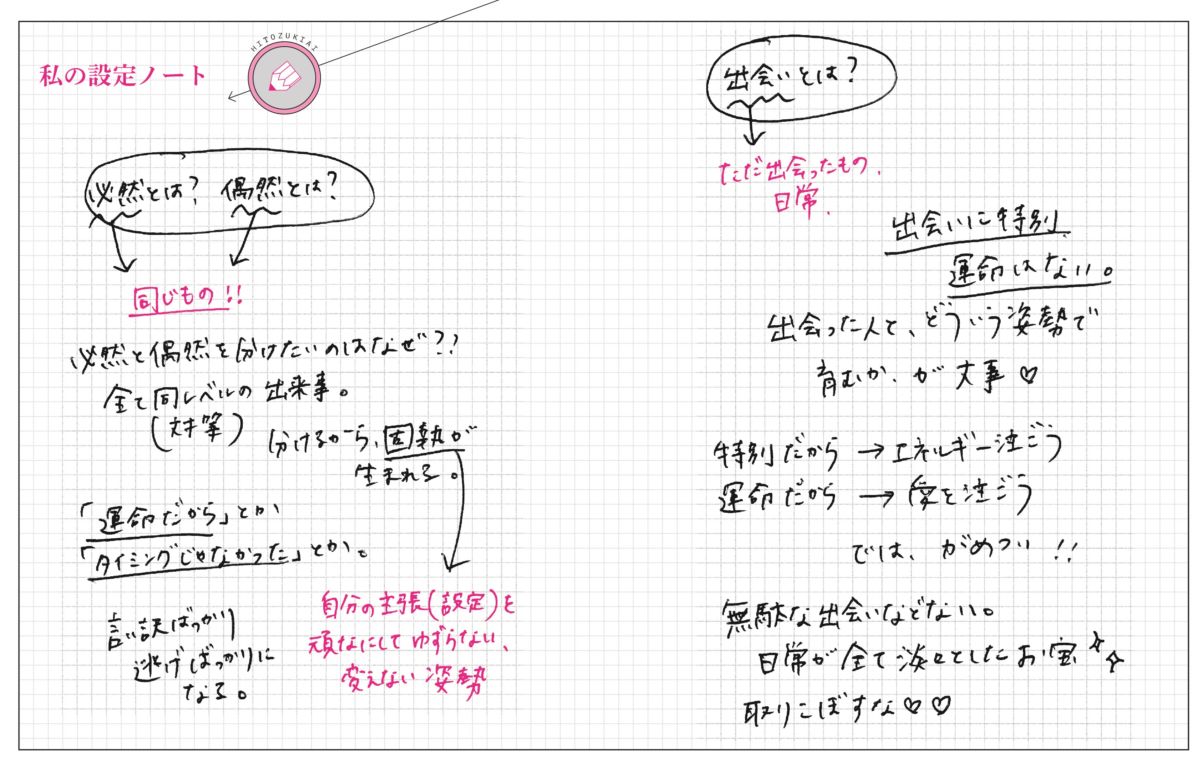 HITOZUKIAI
私の設定ノート
必然とは? 偶然とは?
同じもの!!
必然と偶然を分けたいのはなぜ??
全て同レベルの出来事。
(対等)
分けるから、固執が
生まれる。
「運命だから」とか
「タイミングじゃなかった」とか。
自分の主張(設定)を
頑なにしてゆずらない、
変えない姿勢
言い訳ばっかり
逃げばっかりに
なる。
出会いとは?
ただ出会ったもの、
日常、
出会いに特別、
運命はない。
出会った人と、どういう姿勢で
育むか、が大事♡
特別だから→エネルギー注ごう
運命だから→愛を注ごう
では、がめつい!!
無駄な出会いなどない。
日常が全て淡々としたお宝
取りこぼすな♡♡